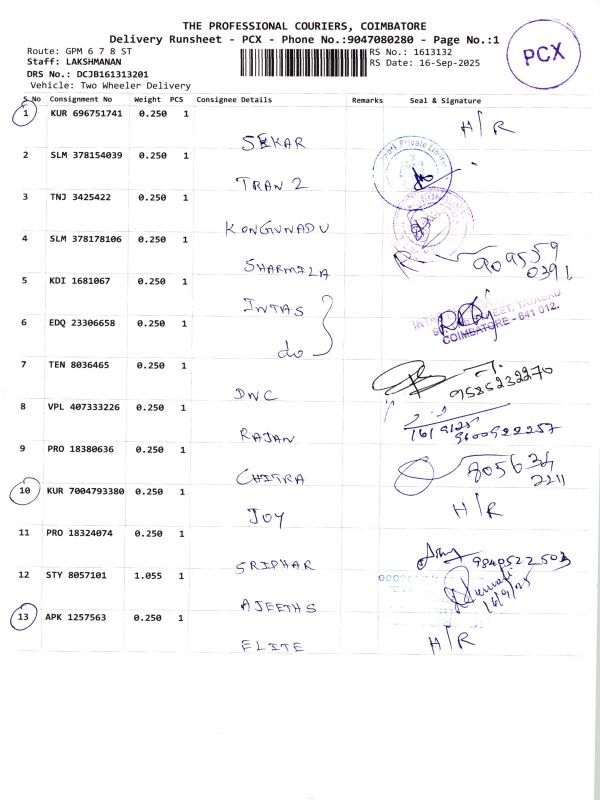 THE PROFESSIONAL COURIERS, COIMBATORE
Delivery Runsheet - PCX - Phone No.:9047080280 - Page No.:1
Route: GPM 6 7 8 ST
RS No.: 1613132
Staff: LAKSHMANAN
RS Date: 16-Sep-2025
DRS No.: DCJB161313201
Vehicle: Two Wheeler Delivery
PCX
S No Consignment No Weight PCS Consignee Details Remarks Seal & Signature
1 KUR 696751741 0.250 1 SEKAR H/R
2 SLM 378154039 0.250 1 TRAN 2
3 TNJ 3425422 0.250 1 KONGUNADU
4 SLM 378178106 0.250 1 SHARMILA 909559
0391
5 KDI 1681067 0.250 1 INTAS
6 EDQ 23306658 0.250 1 do
COIMBATORE - 641 012.
7 TEN 8036465 0.250 1 DNC 9585232270
8 VPL 407333226 0.250 1 RAJAN 16/9/25
9600922257
9 PRO 18380636 0.250 1 CHITRA 805634
2211
10 KUR 7004793380 0.250 1 JOY H/R
11 PRO 18324074 0.250 1 SRIDHAR 9840522503
12 STY 8057101 1.055 1 AJEETHS
16/9/25
13 APK 1257563 0.250 1 ELITE H/R